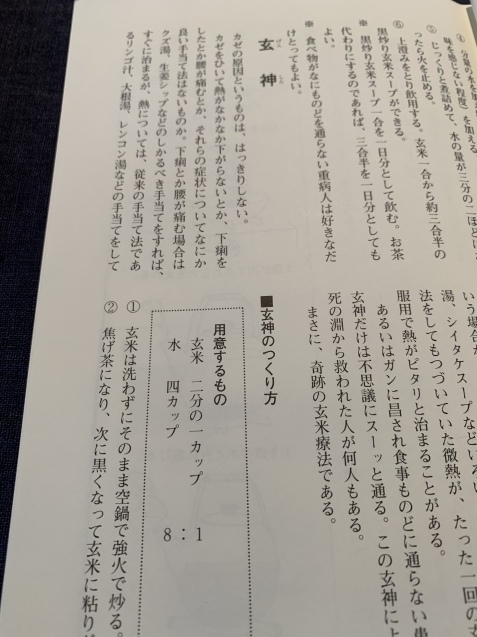 ④ 分量の水を加え
味を感じない程度）を加える。
⑤ じっくりと煮詰めて、水の量が三分の二ほどに
ったら火を止める。
⑥ 上澄みをとり飲用する。玄米一合から約三合半の
黒炒り玄米スープができる。
※ 黒炒り玄米スープ一合を一日分として飲む。お茶
代わりにするのであれば、三合半を一日分としても
よい。
※ 食べ物がなにものどを通らない重病人は好きなだ
けとってもよい。
玄神
げんしん
カゼの原因というものは、はっきりしない。
カゼをひいて熱がなかなか下がらないとか、下痢を
したとか腰が痛むとか、それらの症状についてなにか
良い手当て法はないものか。下痢とか腰が痛む場合は
クズ湯、生姜シップなどのしかるべき手当てをすれば、
すぐに治まるが、熱については、従来の手当て法であ
るリンゴ汁、大根湯、レンコン湯などの手当てをして
いう場合が
湯、シイタケスープなどいろい
法をしてもつづいていた微熱が、たった一回の玄
服用で熱がピタリと治まることがある。
あるいはガンに冒され食事ものどに通らない患
玄神だけは不思議にスーッと通る。この玄神によ
死の淵から救われた人が何人もある。
まさに、奇跡の玄米療法である。
■玄神のつくり方
用意するもの
玄米 二分の一カップ 1
水 四カップ 8：
① 玄米は洗わずにそのまま空鍋で強火で炒る。
② 焦げ茶になり、次に黒くなって玄米に粘りが